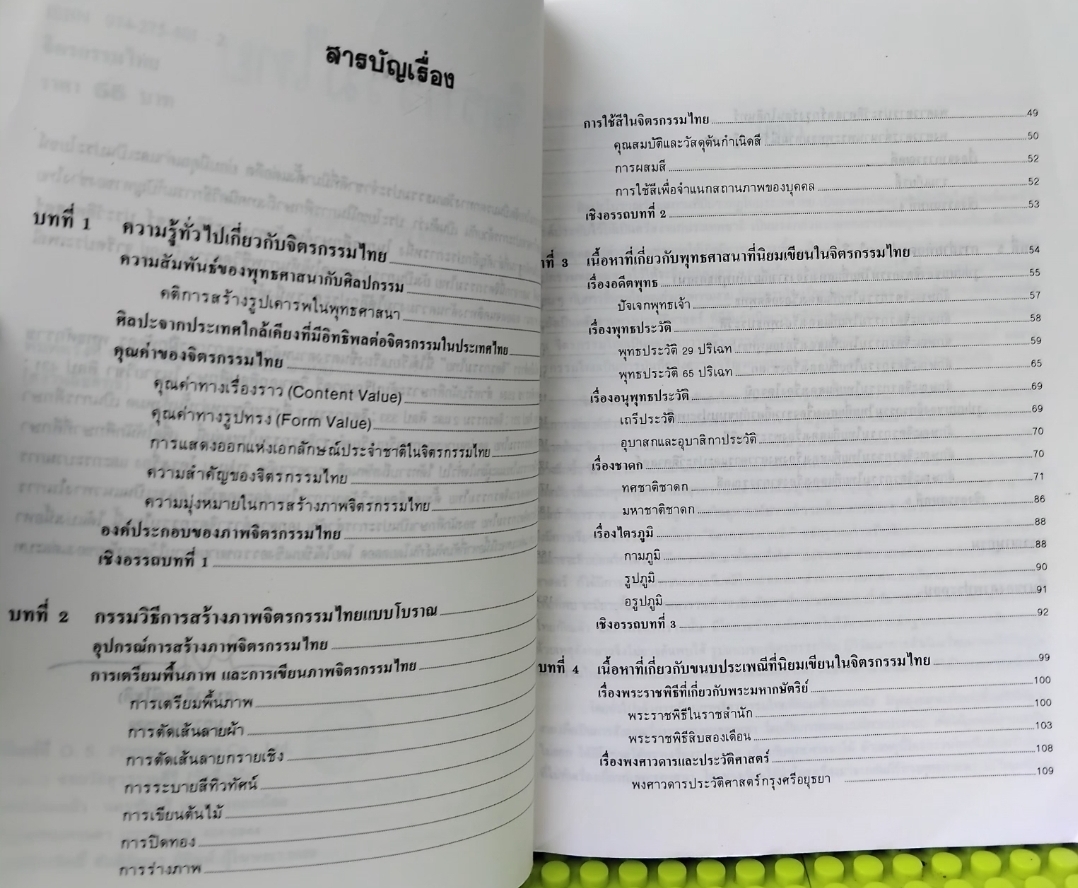 สารบัญเรื่อง
บทที่ 1 ความรู้ทั่วไปเกี่ยวกับจิตรกรรมไทย
ความสัมพันธ์ของพุทธศาสนากับศิลปกรรม
คติการสร้างรูปเคารพในพุทธศาสนา
ศิลปะจากประเทศใกล้เคียงที่มีอิทธิพลต่อจิตรกรรมในประเทศไทย
คุณค่าของจิตรกรรมไทย
คุณค่าทางเรื่องราว (Content Value)
คุณค่าทางรูปทรง (Form Value)
การแสดงออกแห่งเอกลักษณ์ประจำชาติในจิตรกรรมไทย
ความสำคัญของจิตรกรรมไทย
ความมุ่งหมายในการสร้างภาพจิตรกรรมไทย
องค์ประกอบของภาพจิตรกรรมไทย
เชิงอรรถบทที่ 1
บทที่ 2 กรรมวิธีการสร้างภาพจิตรกรรมไทยแบบโบราณ
อุปกรณ์การสร้างภาพจิตรกรรมไทย
การเตรียมพื้นภาพ และการเขียนภาพจิตรกรรมไทย
การเตรียมพื้นภาพ
การตัดเส้นลายผ้า
การตัดเส้นลายกรวยเชิง
การระบายสีทิวทัศน์
การเขียนต้นไม้
การปิดทอง
การร่างภาพ
การใช้สีในจิตรกรรมไทย 49
คุณสมบัติและวัสดุต้นกำเนิดสี 50
การผสมสี 52
การใช้สีเพื่อจำแนกสถานภาพของบุคคล 52
เชิงอรรถบทที่ 2 53
ที่ 3 เนื้อหาที่เกี่ยวกับพุทธศาสนาที่นิยมเขียนในจิตรกรรมไทย 54
เรื่องอดีตพุทธ 55
ปัจเจกพุทธเจ้า 57
เรื่องพุทธประวัติ 58
พุทธประวัติ 29 ปริเฉท 59
พุทธประวัติ 65 ปริเฉท 65
เรื่องอนุพุทธประวัติ 69
เถรีประวัติ 69
อุบาสกและอุบาสิกาประวัติ 70
เรื่องชาดก 70
ทศชาติชาดก 71
มหาชาติชาดก 86
เรื่องไตรภูมิ 88
กามภูมิ 88
รูปภูมิ 90
อรูปภูมิ 91
เชิงอรรถบทที่ 3 92
บทที่ 4 เนื้อหาที่เกี่ยวกับขนบประเพณีที่นิยมเขียนในจิตรกรรมไทย 99
เรื่องพระราชพิธีที่เกี่ยวกับพระมหากษัตริย์ 100
พระราชพิธีในราชสำนัก 100
พระราชพิธีสิบสองเดือน 103
เรื่องพงศาวดารและประวัติศาสตร์ 108
พงศาวดารประวัติศาสตร์กรุงศรีอยุธยา 109